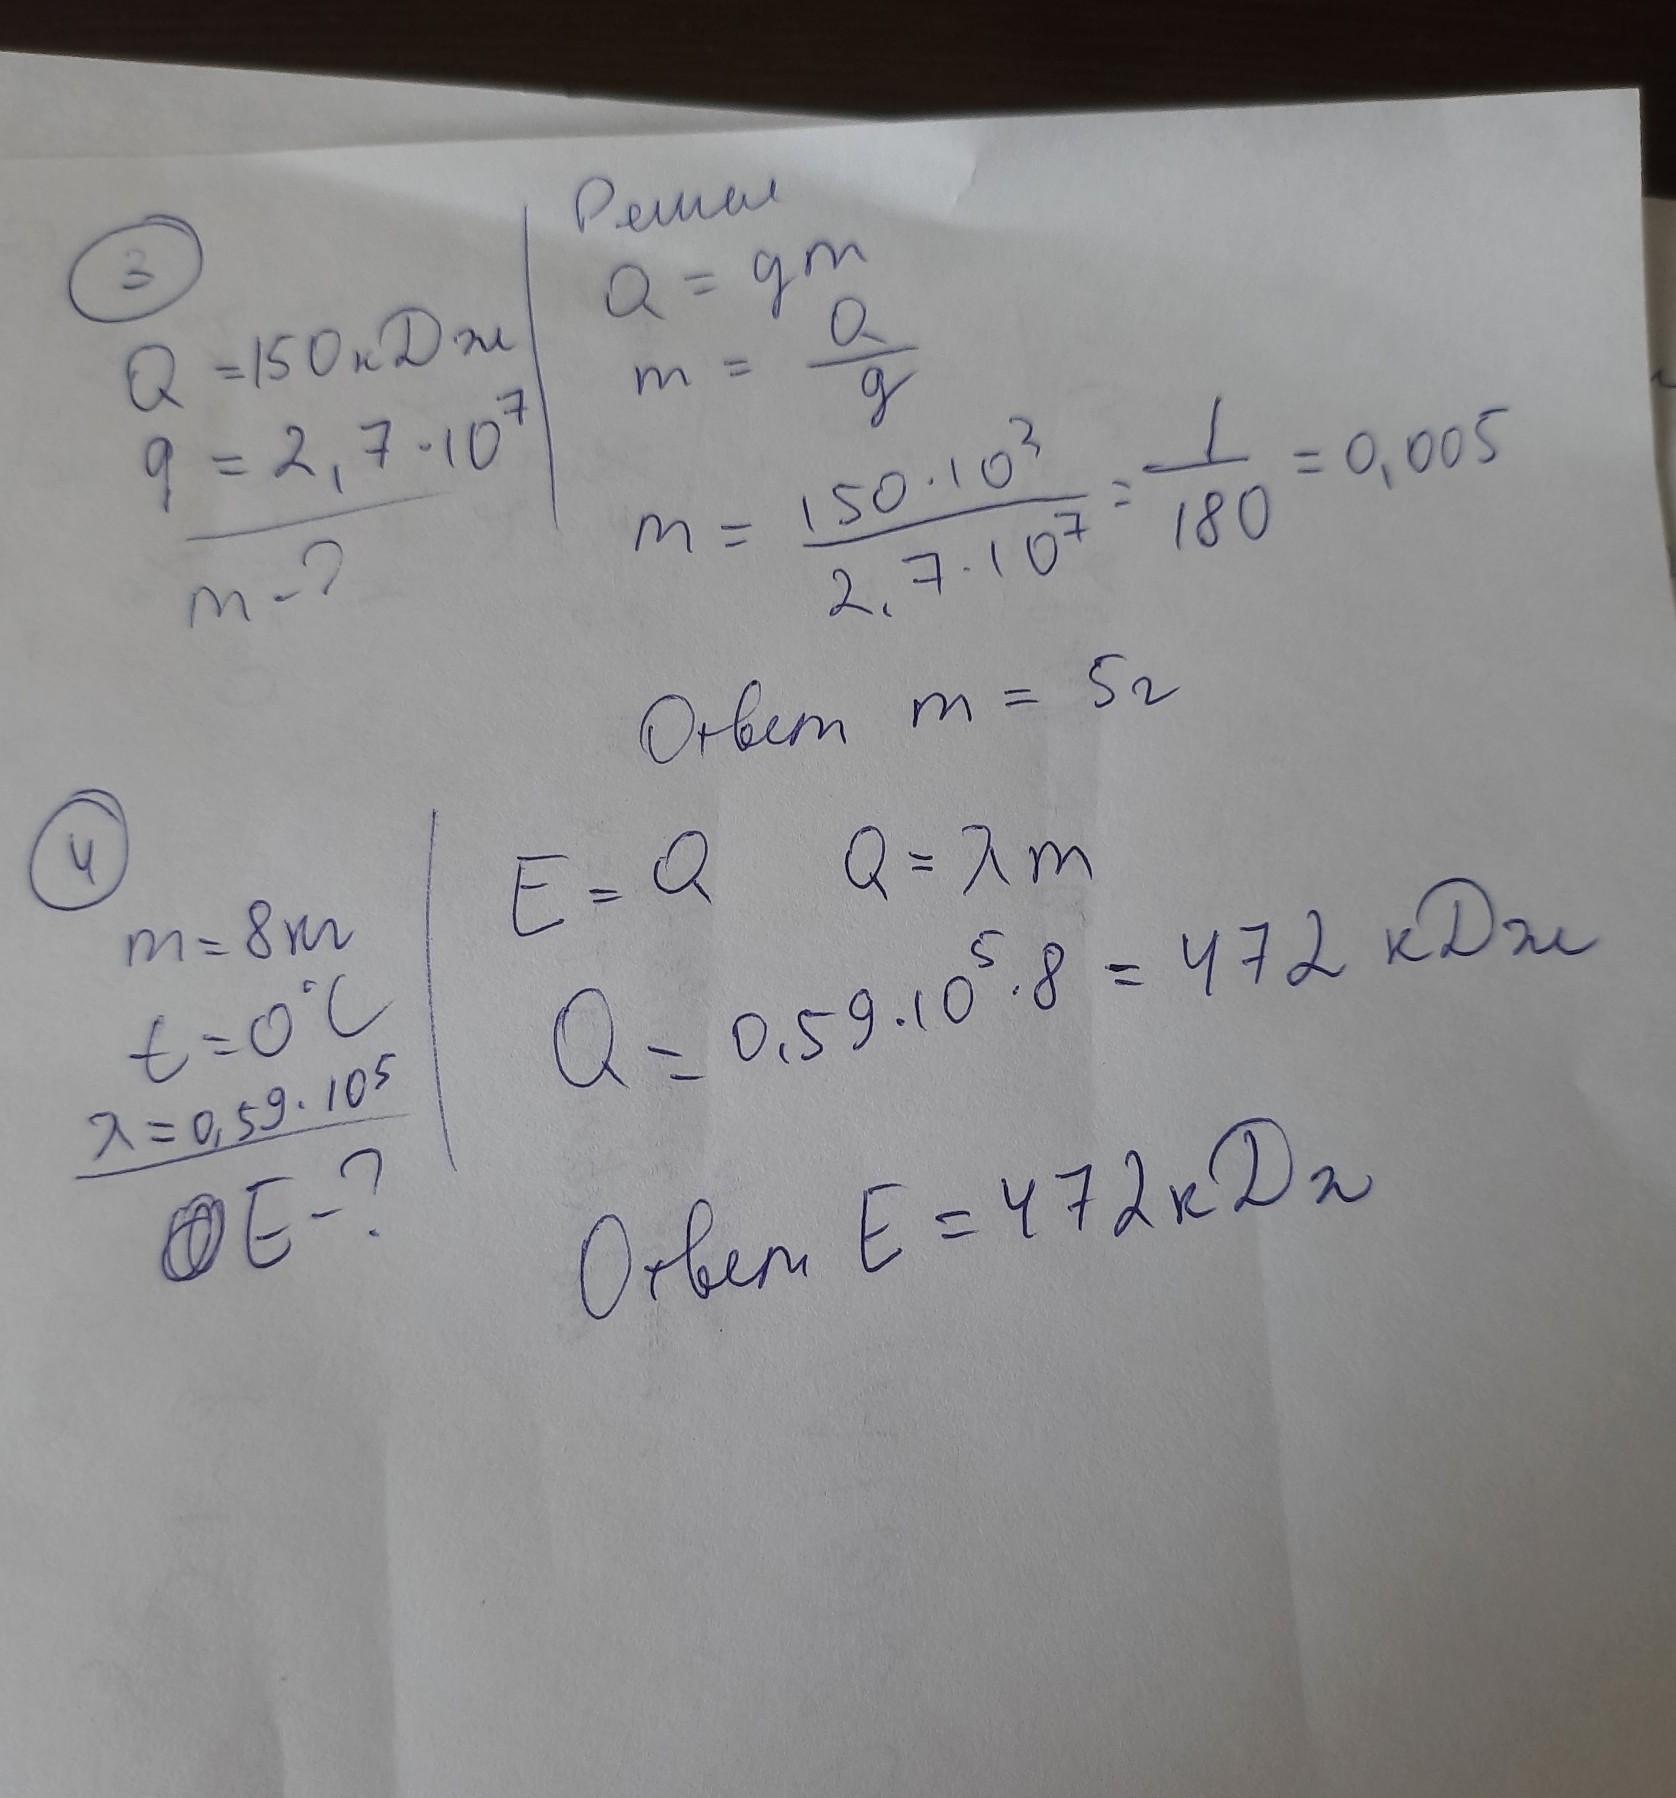 3
Q = 150 кДж
q = 2,7·10⁷
m - ?
Решен
Q = qm
m = Q/q
m = 150·10³/2,7·10⁷ = 1/180 = 0,005
Ответ m = 5г
4
m = 8кг
t = 0°C
λ = 0,59·10⁵
E - ?
E = Q Q = λm
Q = 0,59·10⁵·8 = 472 кДж
Ответ E = 472кДж